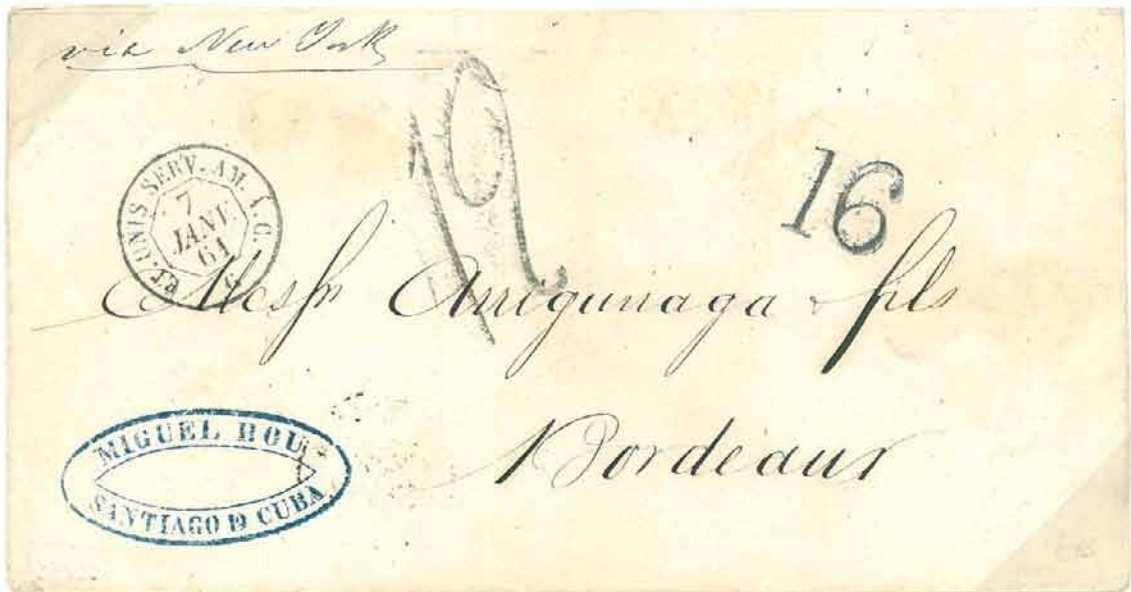 via New York
12
16
ET. UNIS SERV. AM. A. C.
7
JANV.
61
Messrs Arrigunaga & fils
Bordeaux
MIGUEL BOU
SANTIAGO D CUBA